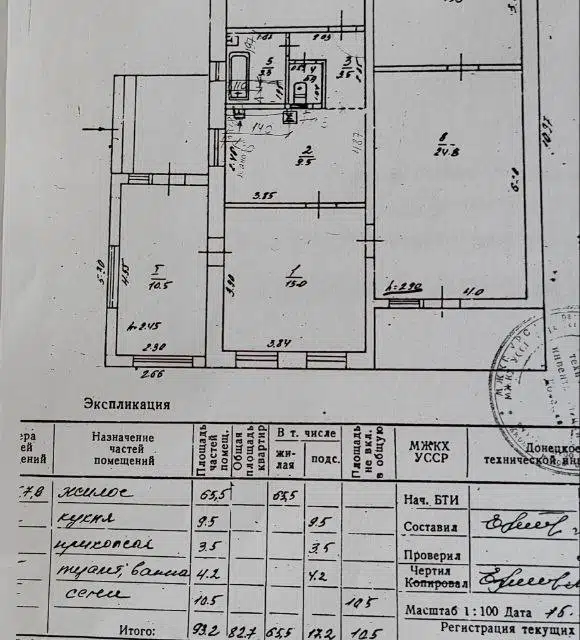 5
3.5
4
3
3.5
140
2
9.5
4.87
3.85
8
24.8
6.20
10.97
I
10.5
5.30
4.55
h=2.45
2.30
2.66
1
15.0
3.90
3.84
h=2.90
4.0
МЖКХ УССР
Экспликация
Назначение частей помещений
Площадь частей помещ.
Общая площадь квартир
В т. числе
жилая
подс.
Площадь не вкл. в общую
МЖКХ УССР
Донецкое
технической
7,8 жилое 65,5 65,5
кухня 9.5 9.5
прихожая 3.5 3.5
туалет, ванна 4.2 4.2
сени 10.5 10.5
Итого: 93.2 82.7 65.5 17.2 10.5
Нач. БТИ
Составил
Проверил
Чертил
Копировал
Масштаб 1:100 Дата 15.
Регистрация текущих